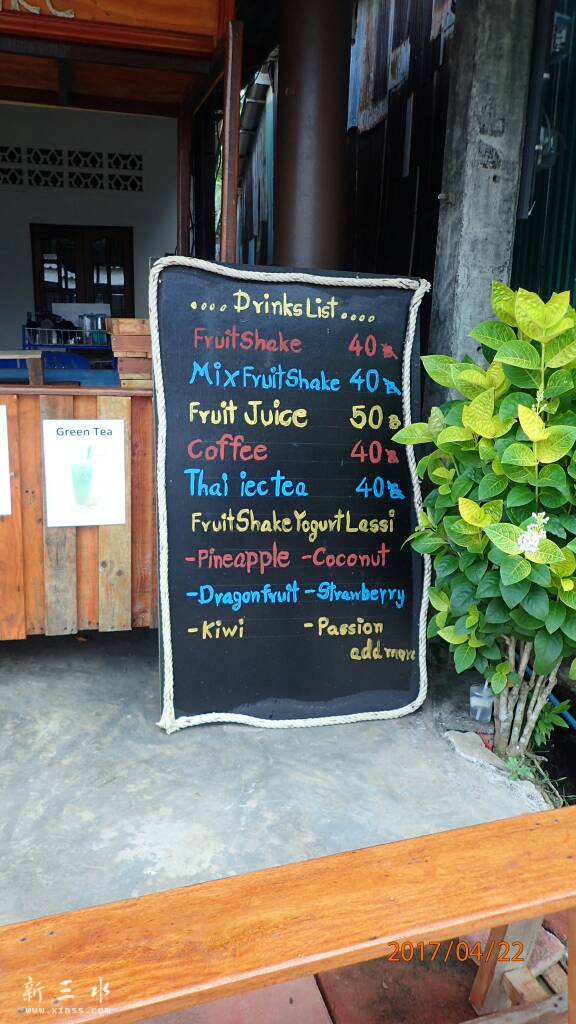 ....Drinks List....
Fruit Shake 40฿
Mix Fruit Shake 40฿
Fruit Juice 50฿
Coffee 40฿
Thai iec tea 40฿
Fruit Shake Yogurt Lassi
-Pineapple -Coconut
-Dragonfruit -Strawberry
-Kiwi -Passion
add more
Green Tea
2017/04/22
新三水
www.xinss.com